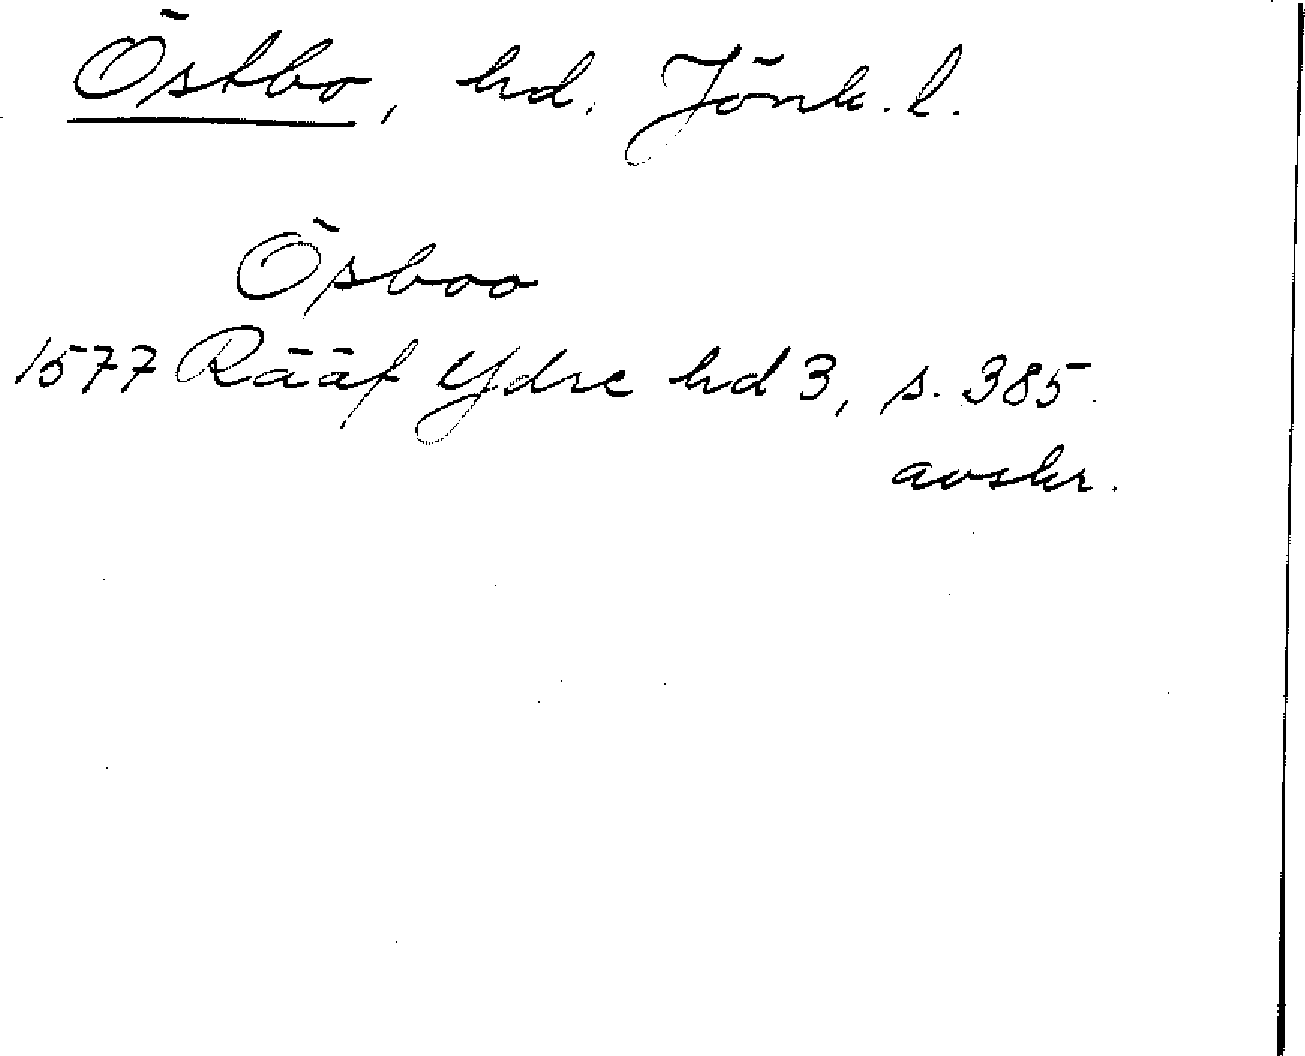 Östbo, hd. Jönk. l.
Ösboo
1577 Rääf Ydre hd 3, s. 385.
avskr.